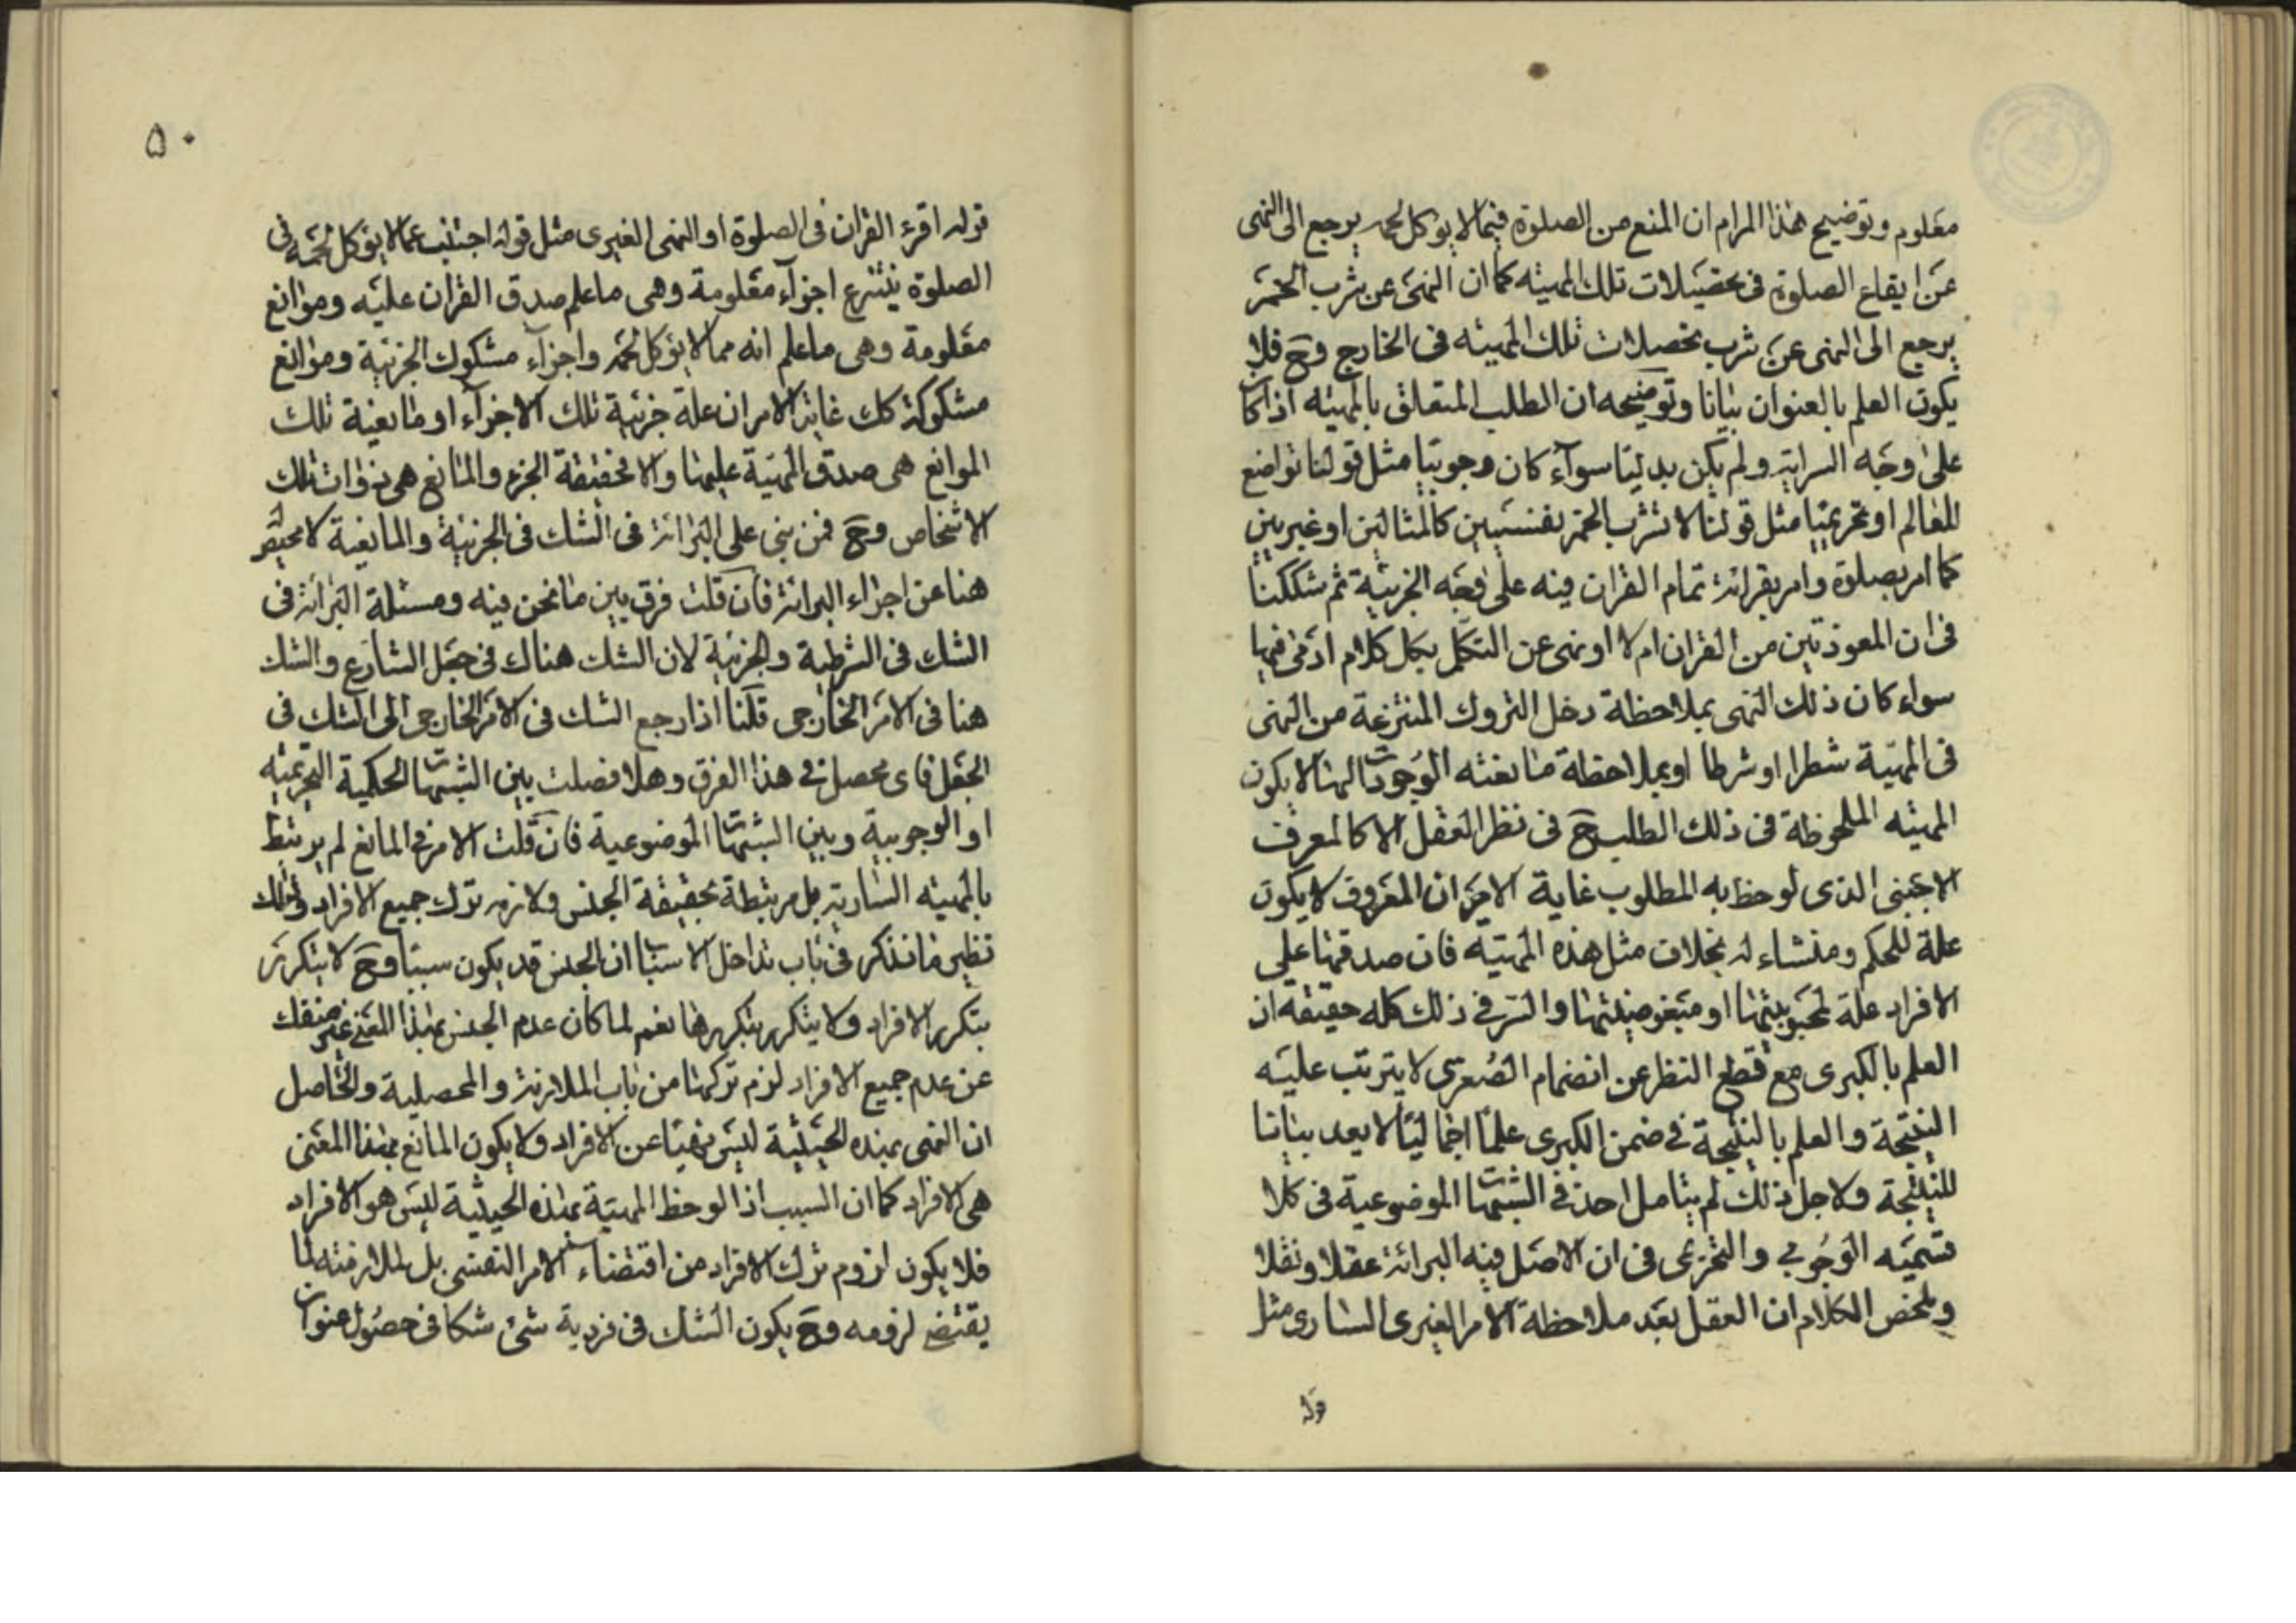 معلوم وتوضيح هذا المرام ان المنع من الصلوة فيما لا يوكل لحمه يرجع الى النهى
عن ايقاع الصلوة فى تحصيلات تلك المهيته كما ان النهى عن شرب الخمر
يرجع الى النهى عن شرب تحصلات تلك المهيته فى الخارج وح فلا
يكون العلم بالعنوان بيانا وتوضيحه ان الطلب المتعلق بالمهيته اذا كان
على وجه السراية ولم يكن بدليتا سوآء كان وجوبيا مثل قولنا تواضع
العالم او تحريميا مثل قولنا لا تشرب الخمر نفسيين كالمثالين او غيريين
كما امر بصلوة وامر بقرائة تمام القران فيه على وجه الجزئية ثم شككنا
فى ان المعوذتين من القران ام لا او نهى عن التكلم بكل كلام ادمى فيها
سواء كان ذلك النهى بملاحظة دخل التروك المنتزعة من النهى
فى المهية شطرا او شرطا او بملاحظة مانعته الوجودات لها لا يكون
المهيته الملحوظة فى ذلك الطلب ح فى نظر العقل الا كالمعرف
الاجنبى الذى لوحظ به المطلوب غاية الامر ان المعروف لا يكون
علة للحكم ومنشاء له بخلاف مثل هذه المهيته فان صدقها على
الافراد علة لمحبوبيتها او مبغوضيتها والسر فى ذلك كله حقيقه ان
العلم بالكبرى مع قطع النظر عن انضمام الصغرى لا يترتب عليه
النتيجة والعلم بالنتيجة فى ضمن الكبرى علما اجماليا لا يعد بيانا
للنتيجة ولاجل ذلك لم يتامل احد فى الشبهات الموضوعية فى كلا
قسميه الوجوبى والتحريمى فى ان الاصل فيه البرائة عقلا ونقلا
وملخص الكلام ان العقل بعد ملاحظة الامر الغيرى السارى مثل
قوله
۵۰
قوله اقرء القران فى الصلوة او النهى الغيرى مثل قوله اجتنب عمالا يؤكل لحمه فى
الصلوة ينتزع اجزآء معلومة وهى ما علم صدق القران عليه وموانع
معلومة وهى ما علم انه مما لا يؤكل لحمه واجزآء مشكوك الجزئية وموانع
مشكوكة كك غاية الامر ان علة جزئية تلك الاجزآء او مانعية تلك
الموانع هى صدق المهية عليها والا فحقيقة الجزء والمانع هى ذوات تلك
الاشخاص وح فمن بنى على البرائة فى الشك فى الجزئية والمانعية لا محيص
هنا عن اجراء البرائة فان قلت فرق بين ما نحن فيه ومسئلة البرائة فى
الشك فى الشرطية والجزئية لان الشك هناك فى جعل الشارع والشك
هنا فى الامر الخارجى قلنا اذا رجع الشك فى الامر الخارجى الى الشك فى
الجعل فاى محصل فى هذا الفرق وهلا فصلت بين الشبهات الحكمية التحريميه
او الوجوبية وبين الشبهات الموضوعية فان قلت الامر فى المانع لم يرتبط
بالمهيته السارية بل مرتبطة بحقيقة الجنس ولازمه ترك جميع الافراد وذلك
نظير ما نذكر فى باب تداخل الاسباب ان الجنس قد يكون سببا وح لا يتكرر
بتكرر الافراد ولا يتكرر بتكررها نعم لما كان عدم الجنس بهذا المعنى غير منفك
عن عدم جميع الافراد لزم تركها من باب الملازمة والمحصلية والحاصل
ان النهى بهذه الحيثية ليس نهيا عن الافراد ولا يكون المانع بهذا المعنى
هى الافراد كما ان السبب اذا لوحظ المهية بهذه الحيثية ليس هو الافراد
فلا يكون لزوم ترك الافراد من اقتضاء الامر النفسى بل لملازمته لما
يقتضى لرفعه وح يكون الشك فى فردية شئ شكا فى حصول عنوان